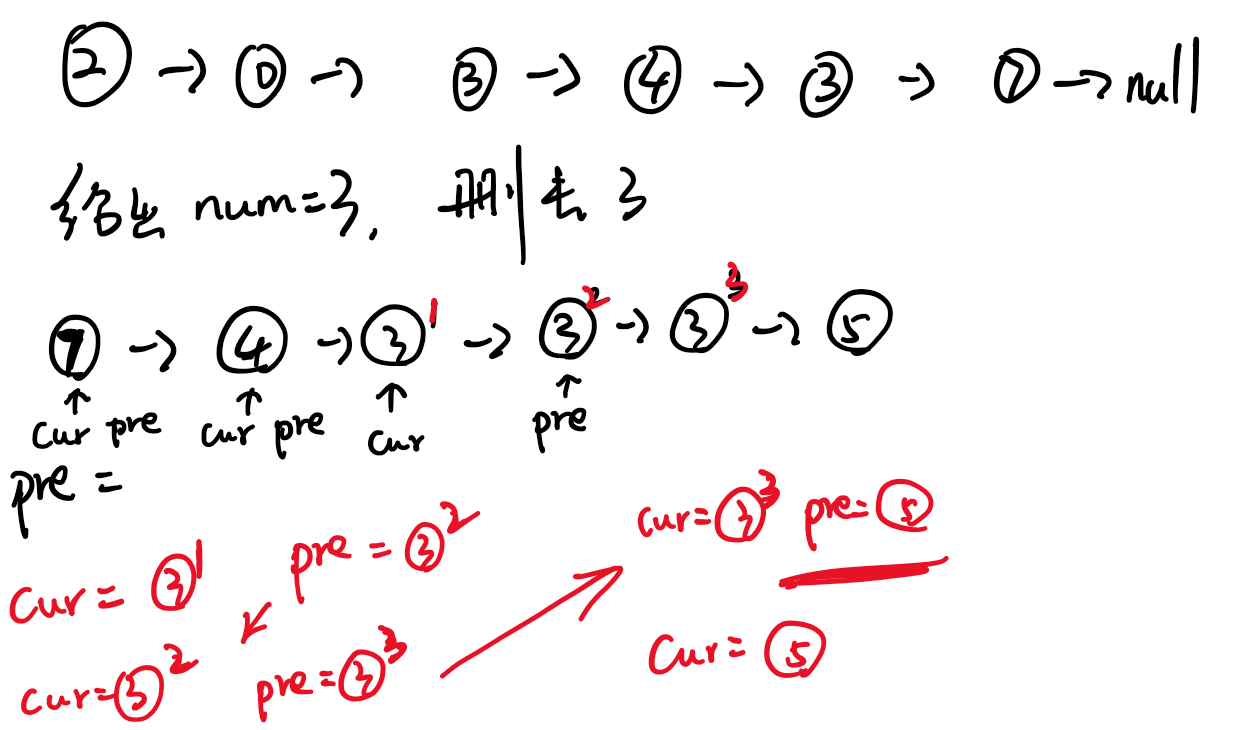 ② → ⓪ → ③ → ④ → ③ → ⑦ → null
给出 num=3, 删去 3
⑦ → ④ → ③1 → ③2 → ③3 → ⑤
↑ ↑ ↑ ↑
cur pre cur pre cur pre
pre =
cur = ③1 pre = ③2
cur=③2 pre=③3
cur=③3 pre=⑤
cur=⑤